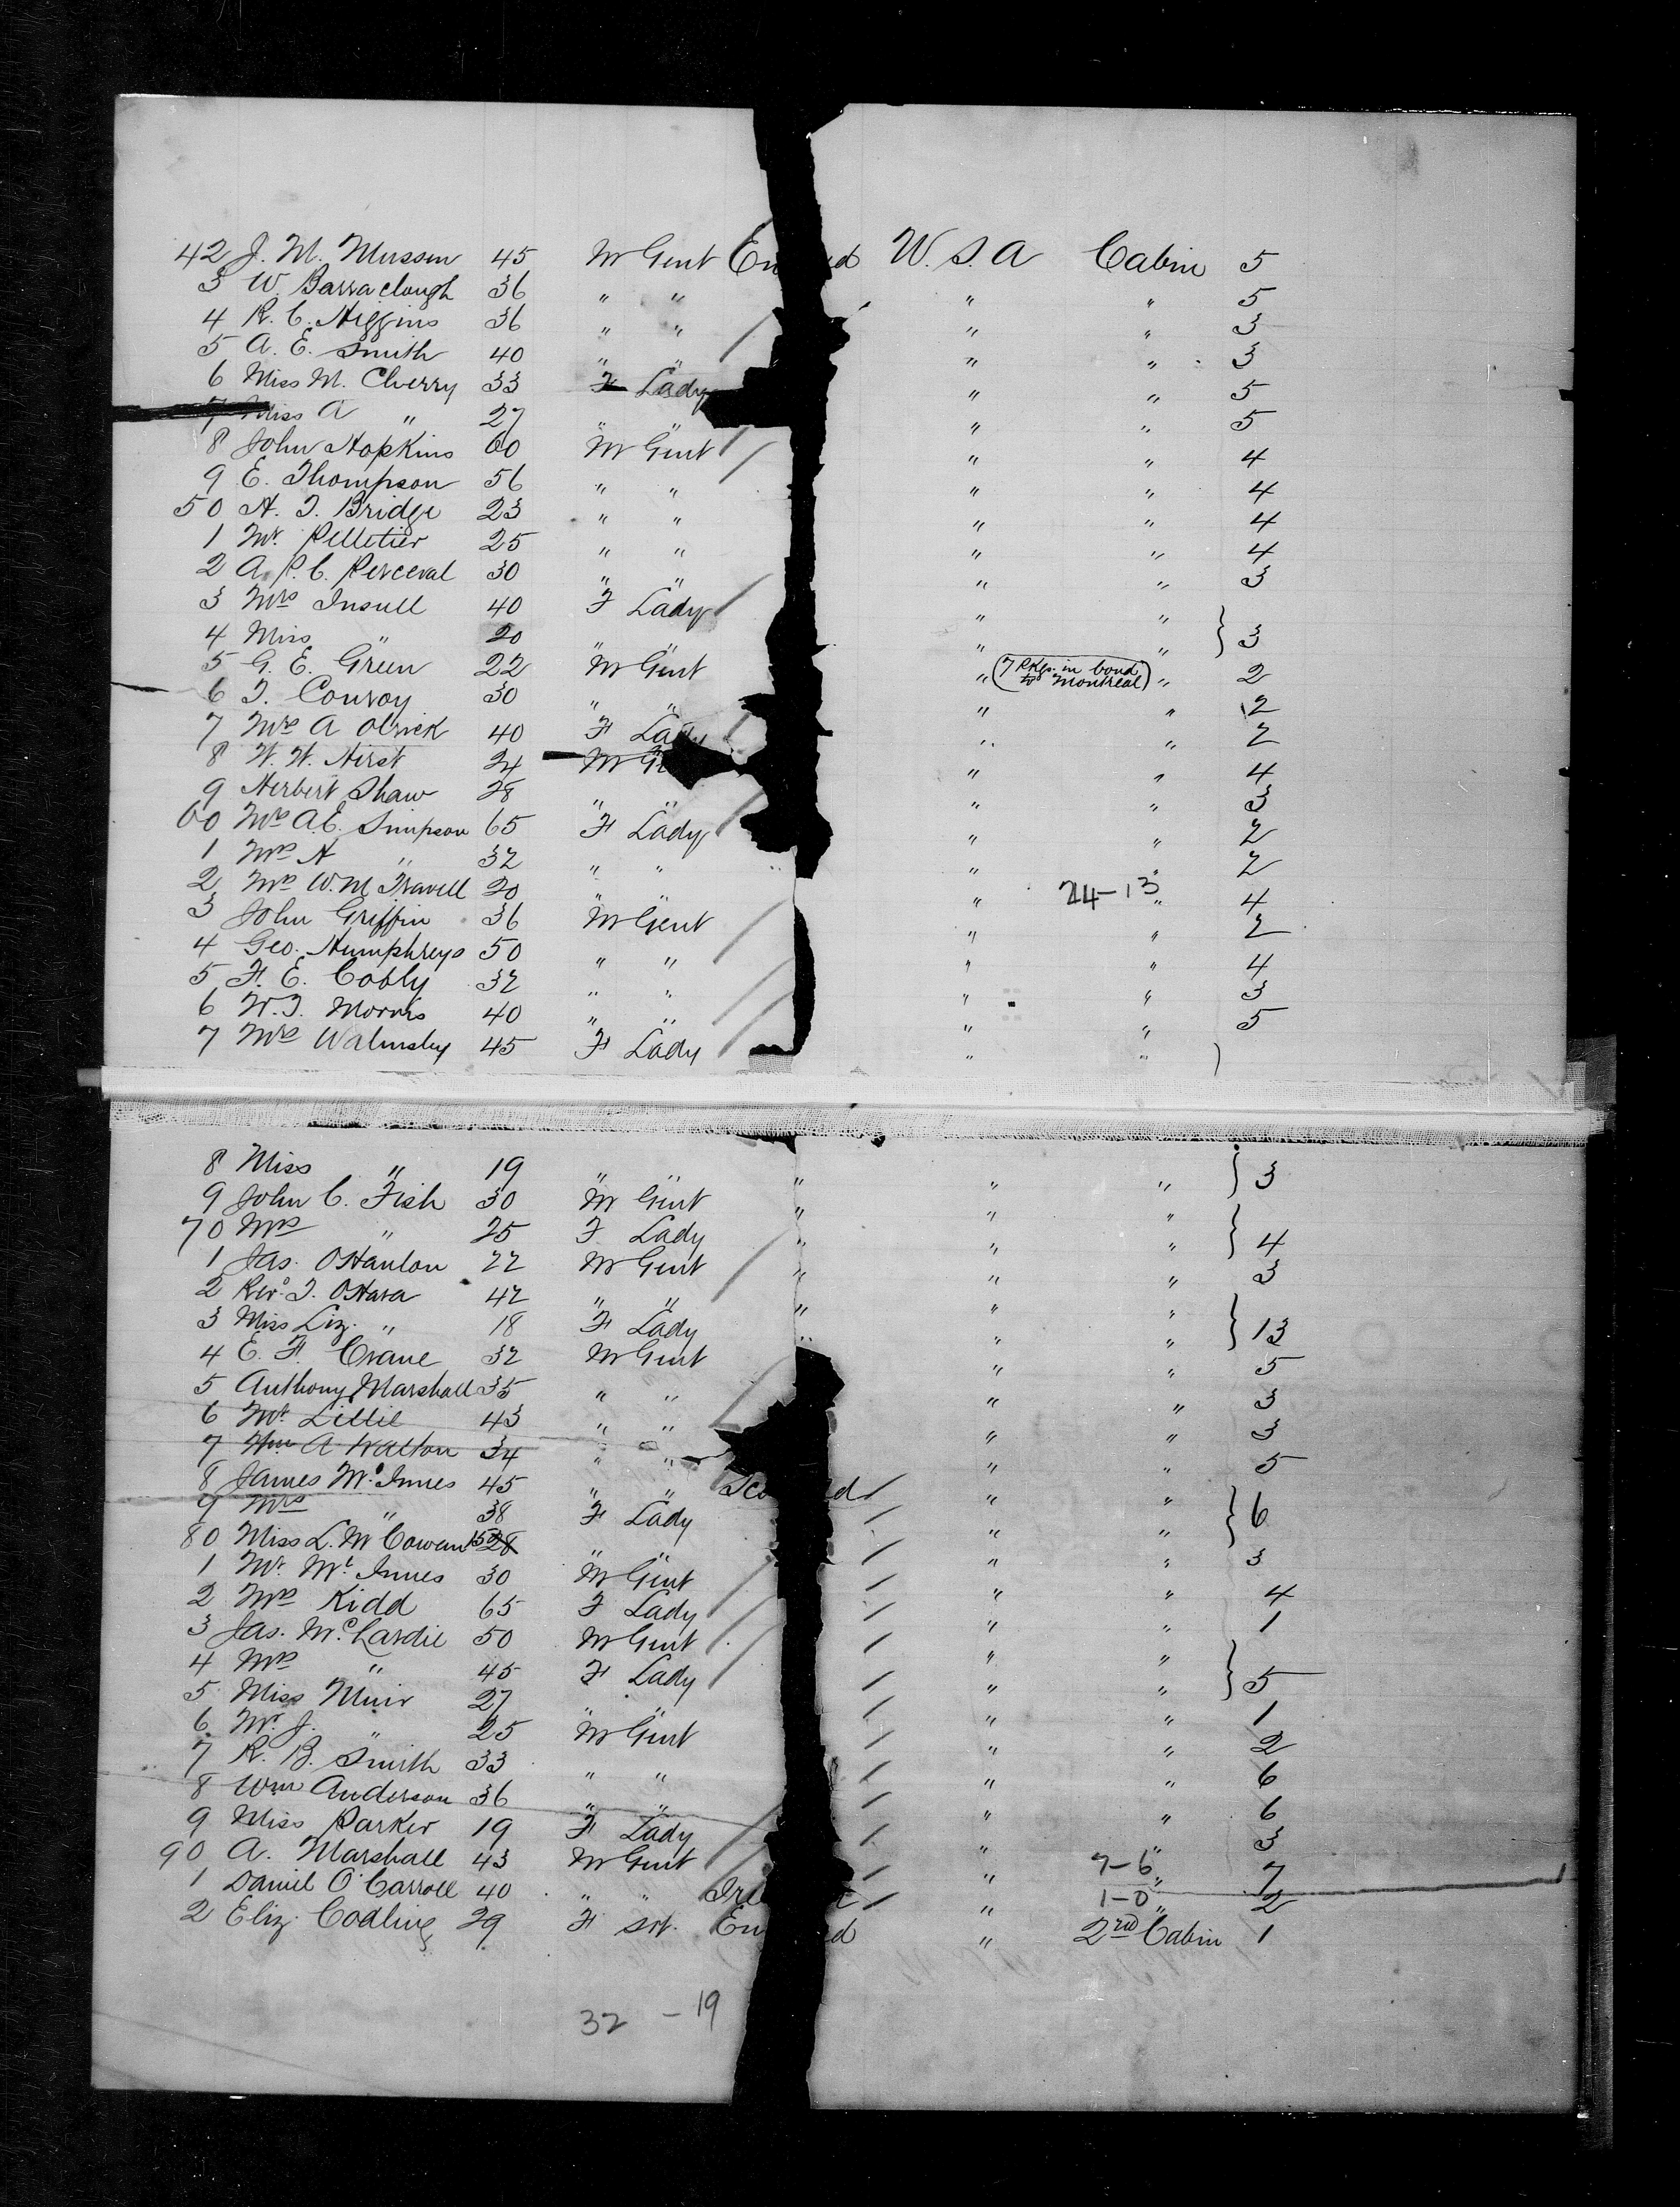 42 J. M. Mussen 45 M Gent En d U.S.A Cabin 5
3 W. Barraclough 36 " " " " 5
4 R. C. Higgins 36 " " " " 3
5 A. E. Smith 40 " " " " 3
6 Miss M. Cherry 33 F Lady " " 5
7 Miss A " 27 " " " 5
8 John Hopkins 60 M Gent " " 4
9 E. Thompson 56 " " " " 4
50 H. T. Bridge 23 " " " " 4
1 Mr. Pelletier 25 " " " " 4
2 A. P. C. Perceval 30 " " " " 3
3 Mrs Insull 40 F Lady " "
4 Miss " 20 " " " " } 3
5 G. E. Green 22 M Gent " (7 Pkgs. in bond to Montreal) " 2
6 T. Conroy 30 " " " " 2
7 Mrs A Olrick 40 F Lady " " 2
8 W. W. Hirst 24 M G " " 4
9 Herbert Shaw 28 " " " " 3
60 Mrs A.E. Simpson 65 F Lady " " 2
1 Mrs H " 32 " " " " 2
2 Mrs W. M. Travell 20 " " " 24-13 " 4
3 John Griffin 36 M Gent " " 2
4 Geo. Humphreys 50 " " " " 4
5 F. E. Cobly 32 " " " " 3
6 W. T. Morris 40 " " " " 5
7 Mrs Walmsley 45 F Lady " " }
8 Miss " 19 " " " " " } 3
9 John C. Fish 30 M Gent " " "
70 Mrs " 25 F Lady " " " } 4
1 Jas. OHanlon 22 M Gent " " " 3
2 Rev. T. OHara 42 " " " " "
3 Miss Liz. " 18 F Lady " " " } 13
4 E. F. Crane 32 M Gent " " 5
5 Anthony Marshall 35 " " " " 3
6 Mr. Lillie 43 " " " " 3
7 Wm A Walton 34 " " " " 5
8 James McInnes 45 " " Sco d " "
9 Mrs " 38 F Lady " " } 6
80 Miss L. McCowan 15 28 " " " " 3
1 Mr. McInnes 30 M Gent " " 4
2 Mrs Kidd 65 F Lady " " 1
3 Jas. McLardie 50 M Gent " "
4 Mrs " 45 F Lady " " } 5
5 Miss Muir 27 " " " " 1
6 Mr. J. " 25 M Gent " " 2
7 R. B. Smith 33 " " " " 6
8 Wm Anderson 36 " " " " 6
9 Miss Parker 19 F Lady " " 3
90 A. Marshall 43 M Gent " 7-6 " 7
1 Daniel O'Carroll 40 " " Ire " 1-0 " 2
2 Eliz. Codling 29 F Srt. En d " 2nd Cabin 1
32 - 19